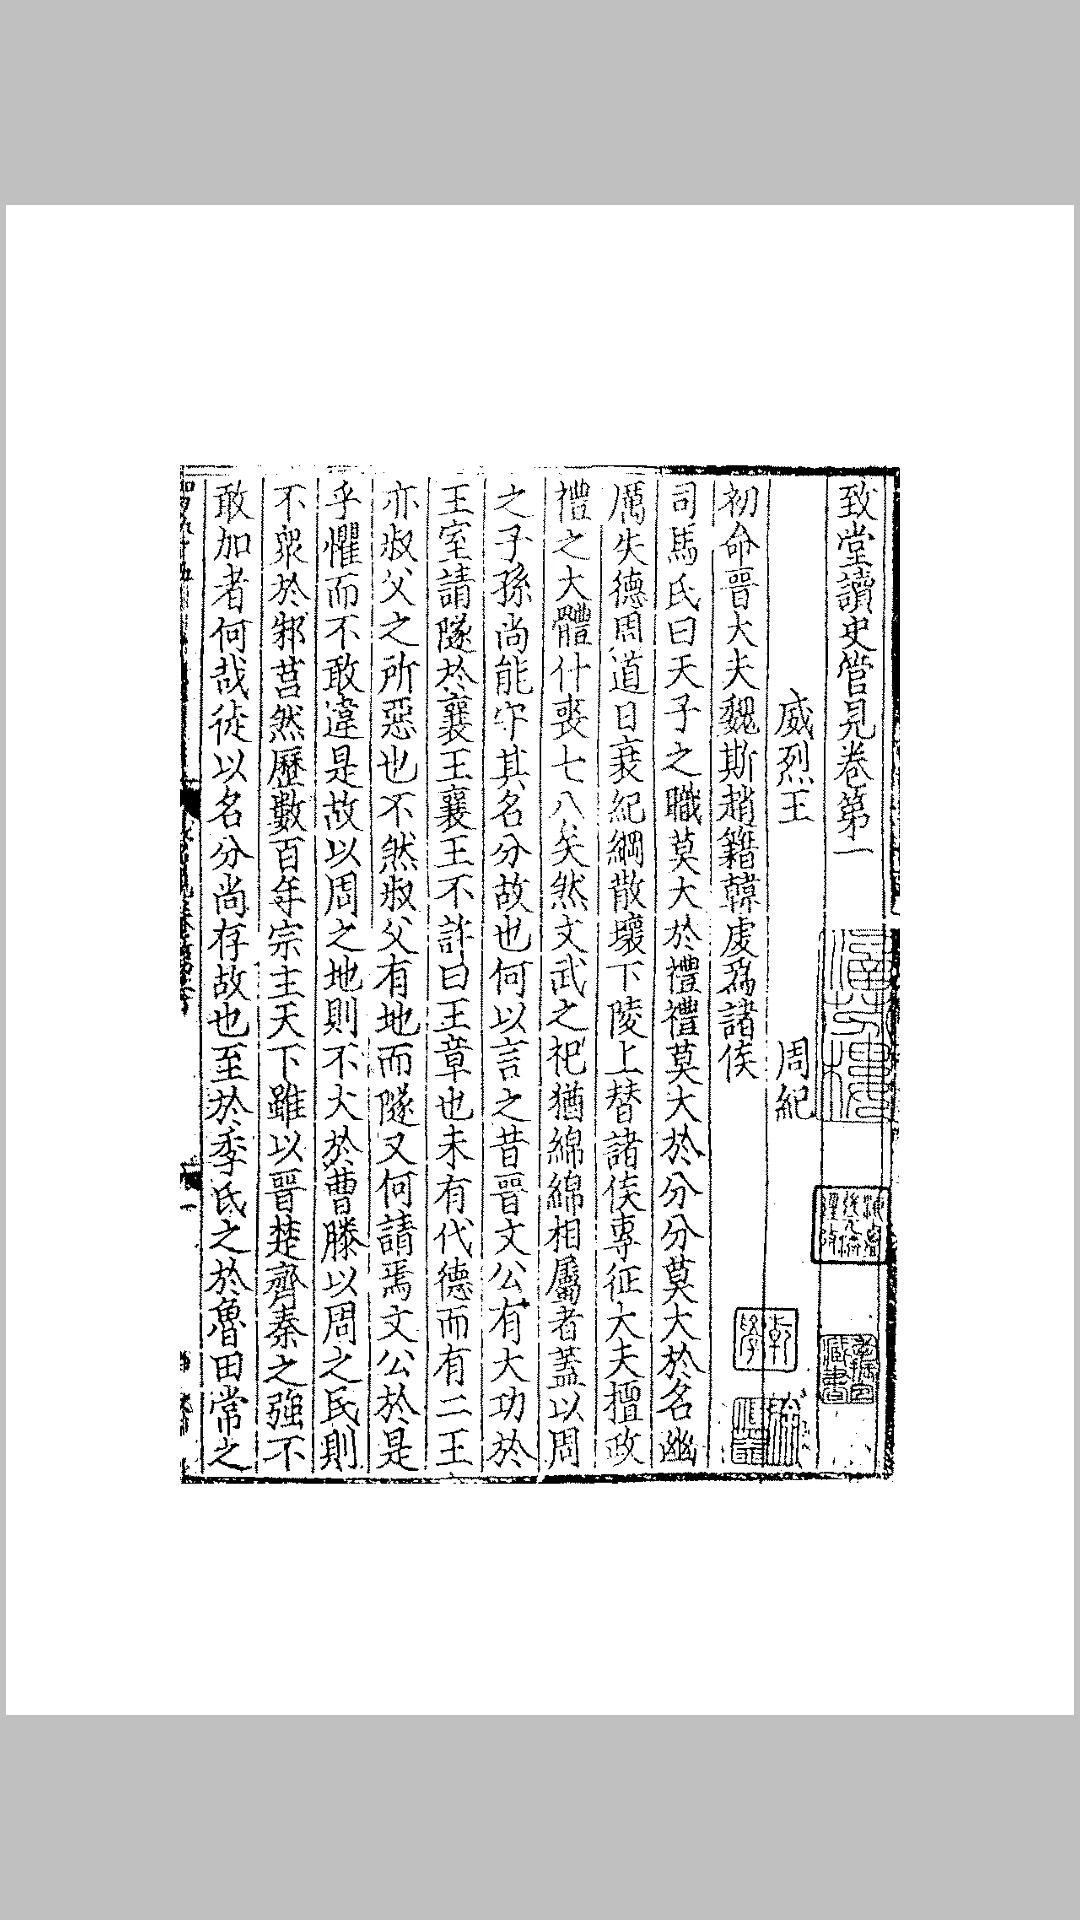 致堂讀史管見卷第一
威烈王　周紀
初命晉大夫魏斯趙籍韓虔爲諸侯
司馬氏曰天子之職莫大於禮禮莫大於分分莫大於名幽
厲失德周道日衰紀綱散壞下陵上替諸侯專征大夫擅政
禮之大體什喪七八矣然文武之祀猶綿綿相屬者蓋以周
之子孫尚能守其名分故也何以言之昔晉文公有大功於
王室請隧於襄王襄王不許曰王章也未有代德而有二王
亦叔父之所惡也不然叔父有地而隧又何請焉文公於是
乎懼而不敢違是故以周之地則不大於曹滕以周之民則
不衆於邾莒然歷數百年宗主天下雖以晉楚齊秦之強不
敢加者何哉徒以名分尚存故也至於季氏之於魯田常之